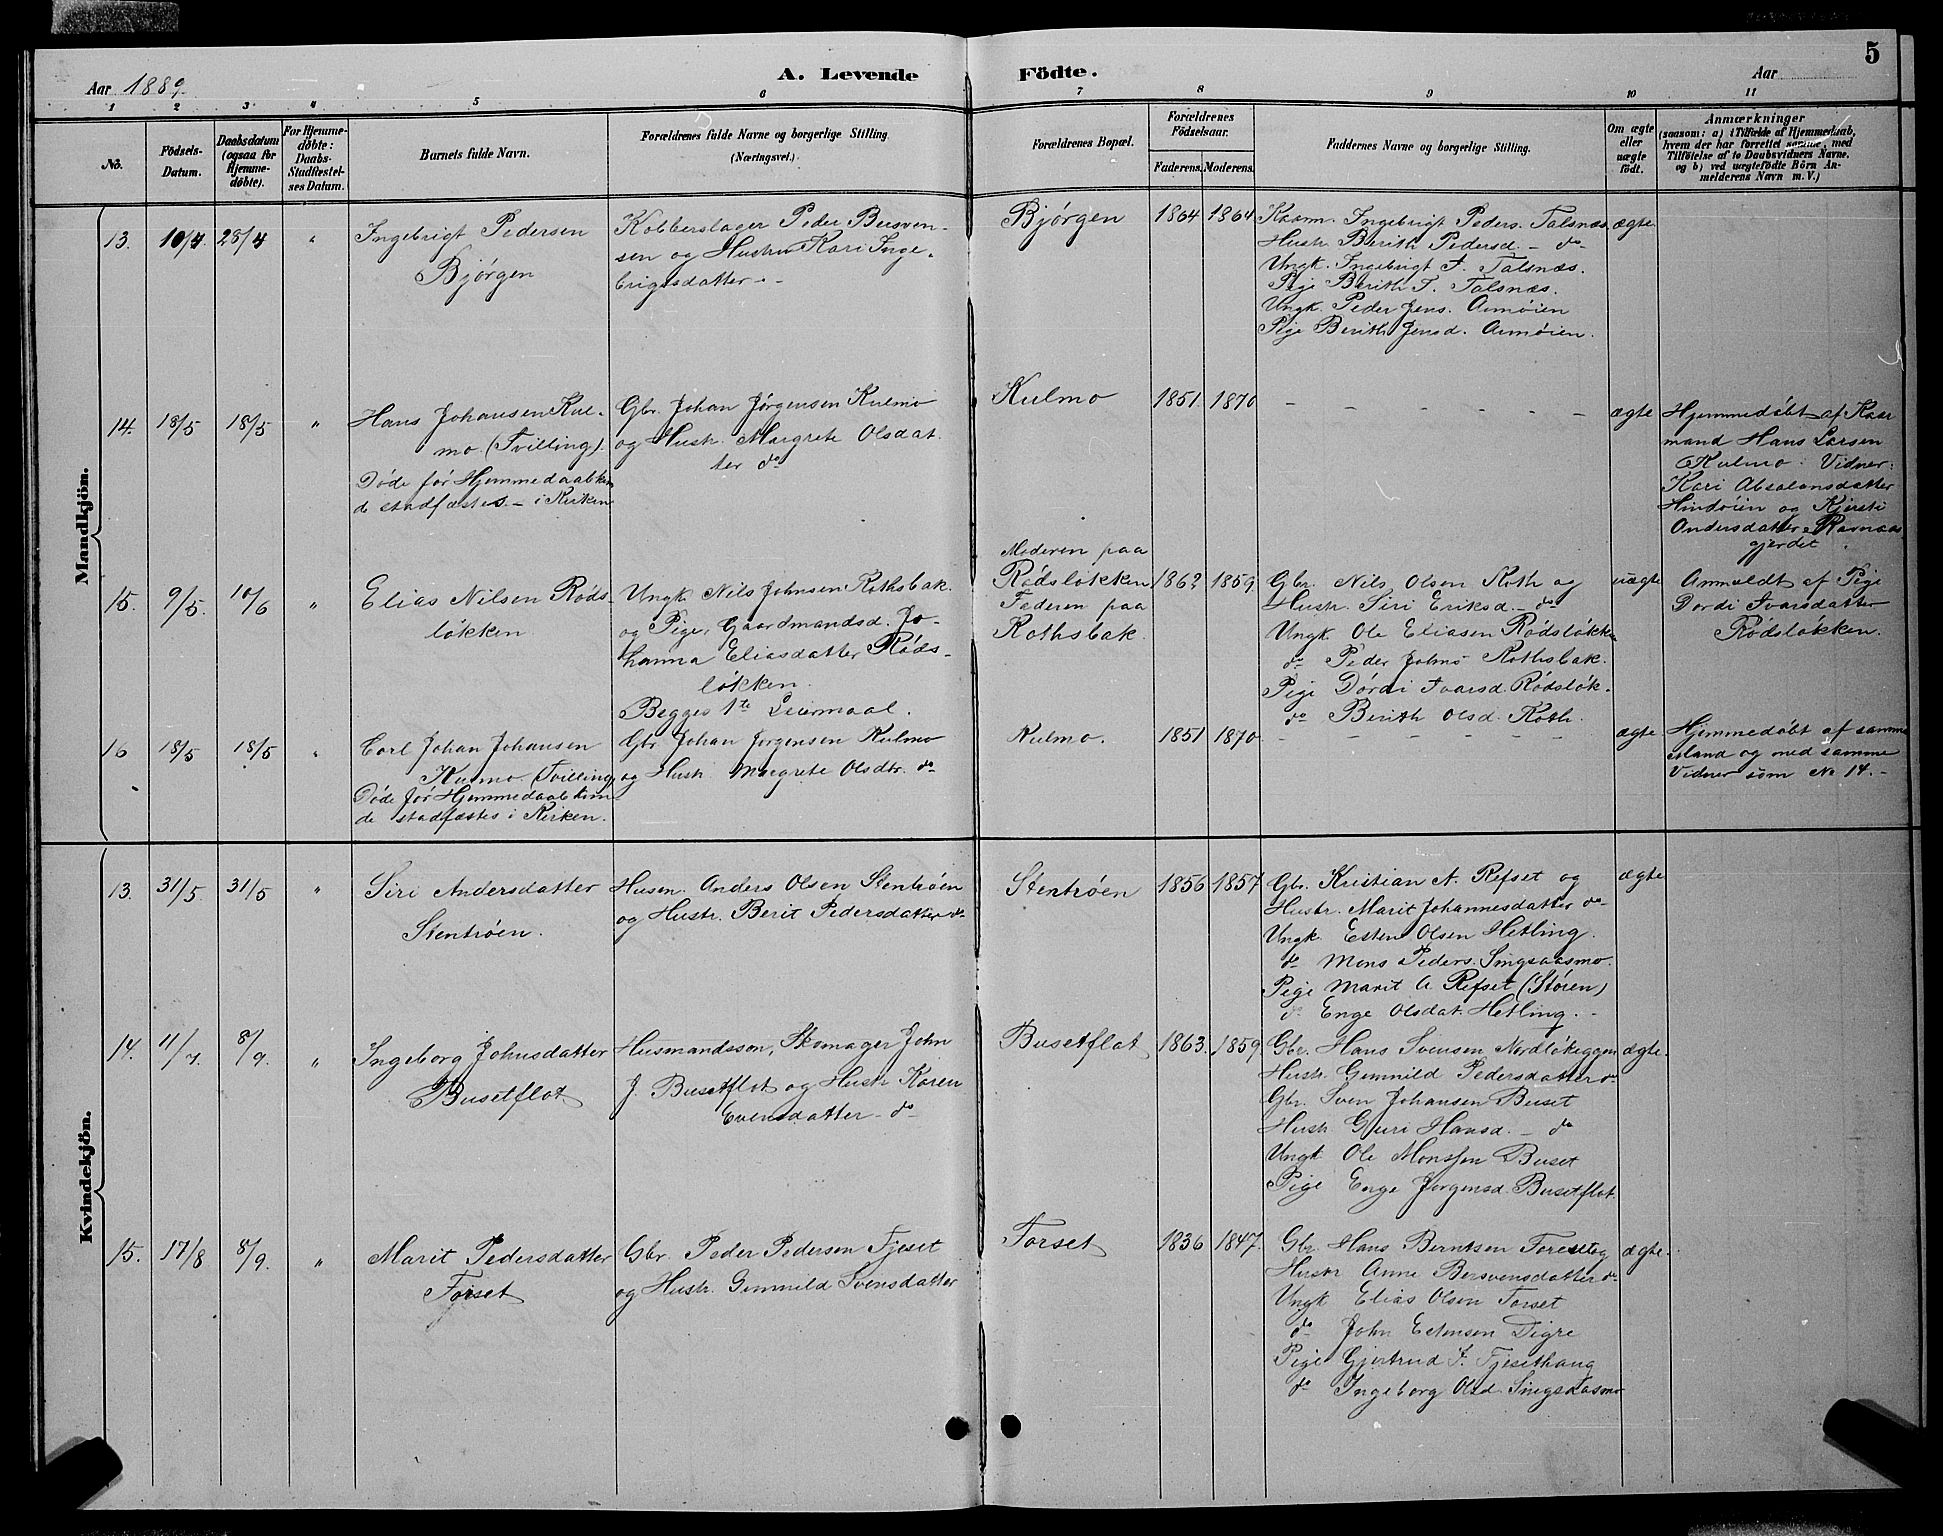 5
Aar 1889.
A. Levende Födte.
Aar
1 2 3 4 5 6 7 8 9 10 11
No.
Födsels-
Datum.
Daabsdatum
(ogsaa for
Hjemme-
döbte).
For Hjemme-
døbte:
Daabs-
Stadfæstel-
ses Datum.
Barnets fulde Navn.
Forældrenes fulde Navne og borgerlige Stilling.
(Næringsvei.)
Forældrenes Bopæl.
Forældrenes
Födselsaar.
Faderens. Moderens.
Faddernes Navne og borgerlige Stilling.
Om ægte
eller
uægte
födt.
Anmærkninger
(saasom: a) i Tilfælde af Hjemmedaab,
hvem der har forrettet samme, med
Tilföielse af to Daabsvidners Navne,
og b) ved uægtefödte Börn An-
melderens Navn m. V.)
Mandkjön.
13. 10/4 28/4 "
Ingebrigt Pedersen
Bjørgen
Kobberslager Peder Bersven-
sen og Hustru Kari Inge-
brigtsdatter -
Bjørgen
1864 1864
Ingebrigt Peders. Talsnæs.
Hustr. Berith Pedersd. - do
Ungk. Ingebrigt I. Talsnæs.
Pige Berith I. Talsnæs.
Ungk. Peder Jens. Aunøien
Pige Berith Jensd. Aunøien.
ægte
14. 18/5 18/5 "
Hans Johansen Kul-
mo (Tvilling).
Døde før Hjemmedaab kun-
de stadfæstes - i Kirken
Gbr. Johan Jørgensen Kulmo
og Hustr. Margrete Olsdat
ter do
Kulmo
1851. 1870
- - - - - -
ægte
Hjemmedøbt af Kaar
mand Hans Larsen
Kulmo. Vidner:
Kari Absalonsdatter
Hindøien og Kjersti
Andersdatter Ravnaas
gjerdet.
15. 9/5. 10/6 "
Elias Nilsen Røds-
løkken
Ungk. Nils Johnsen Rothsbak.
og Pige, Gaardmandsd. Jo-
hanna Eliasdatter Røds-
løkken.
Begges 1te Leiermaal.
Moderen paa
Rødsløkken
Faderen paa
Rothsbak.
1862 1859.
Gbr. Nils Olsen Roth og
Hustr. Siri Eriksd. - do
Ungk Ole Eliasen Rødsløkke
do Peder Johns Rothsbak.
Pige Dørdi Ivarsd. Rødsløk.
do Berith Olsd. Roth.
uægte
Anmeldt af Pige
Dordi Ivarsdatter
Rødsløkken.
16 18/5 18/5 "
Carl Johan Johansen
Kulmo. (Tvilling
Døde før Hjemmedaab kun-
de stadfæstes i Kirken.
Gbr. Johan Jørgensen Kulmo
og Hustr Margrete Olsdtr. do
Kulmo.
1851 1870
- - - - - -
ægte
Hjemmedøbt af samme
Mand og med samme
Vidner som No 14. -
Kvindekjön.
13. 31/5. 31/5 "
Siri Andersdatter
Stentrøen.
Husm. Anders Olsen Stentrøen
og Hustr. Berit Pedersdatter do
Stentrøen
1856 1857
Gbr. Kristian A. Refset og
Hustr. Marit Johannesdatter do
Ungk. Esten Olsen Hetling.
do Mons Peders. Singsaasmo.
Pige Marit A. Refset (Støren)
do Enge Olsdat. Hetling. -
ægte
14. 11/7 8/9. "
Ingeborg Johnsdatter
Busetflot
Husmandssøn, Skomager John
J. Busetflot og Hustr Karen
Evensdatter - do
Busetflot
1863. 1859
Gbr. Hans Svensen Nordløkeggen
Hustr. Gunnild Pedersdatter do
Gbr. Sven Johansen Buset
Hustr. Guri Hansd. - do
Ungk Ole Monssen Buset
Pige Enge Jørgensd. Busetflot.
ægte.
15. 17/8 8/9. "
Marit Pedersdatter
Forset
Gbr. Peder Pedersen Fjeset
og Hustr. Gunnild Svensdatter
Forset
1836 1847.
Gbr. Hans Berntsen
Hustr Anne Bersvensdatter do
Ungk Elias Olsen Forset
do John Estensen Digre
Pige Gjertrud I. Fjesethaug
do Ingeborg Olsd. Singsaasmo
ægte.